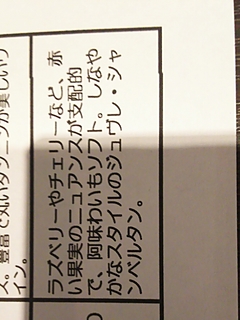 ス。豊富で丸いタンニンが美しいワ
イン。
ラズベリーやチェリーなど、赤
い果実のニュアンスが支配的
で、阿味わいもソフト。しなや
かなスタイルのジュヴレ・シャ
ンベルタン。